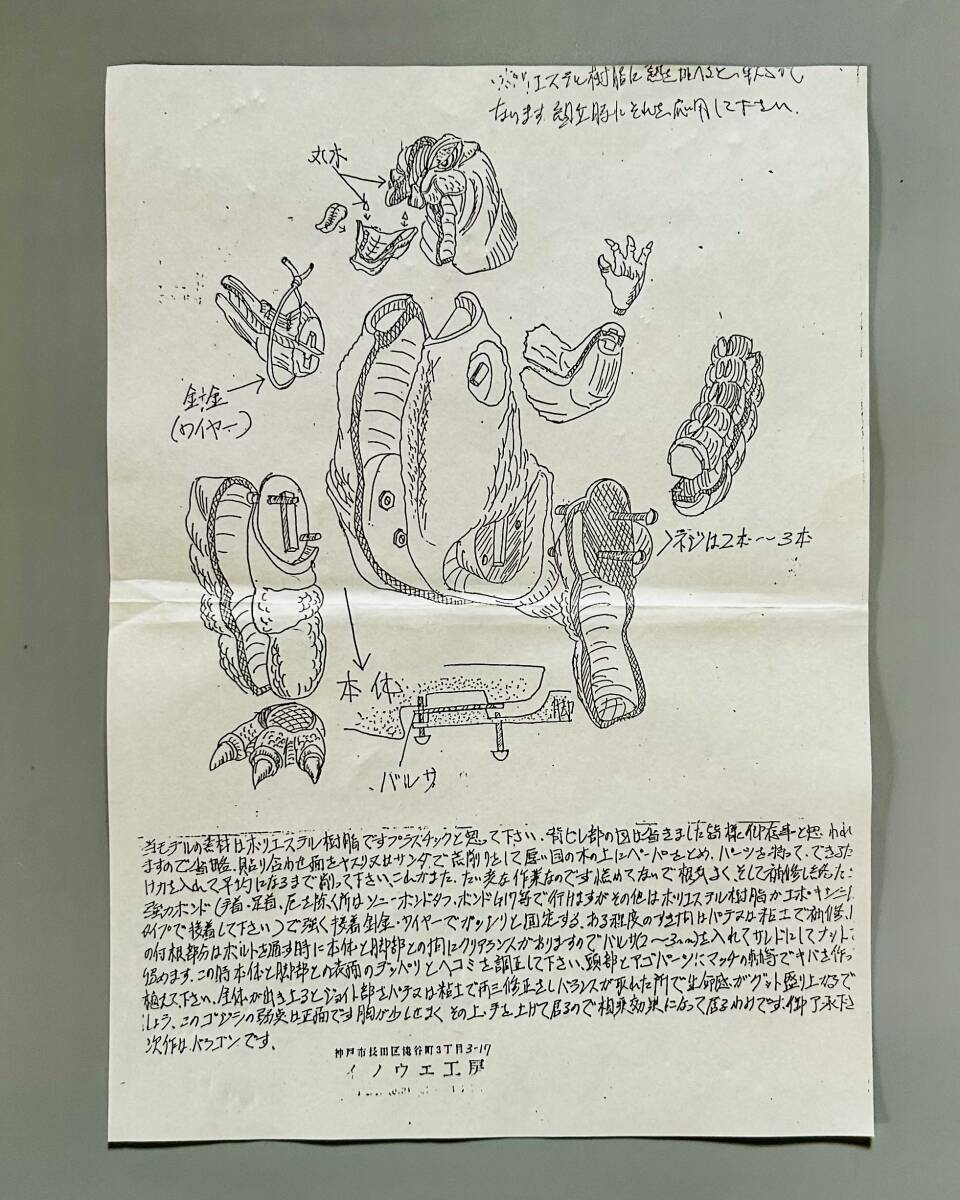 ポリエステル樹脂に熱を加えると柔らかく
なります 組立時にそれを応用して下さい.
丸木
針金
(ワイヤー)
ネジは2本〜3本
本体
脚
バルサ
当モデルの素材はポリエステル樹脂ですプラスチックと思って下さい. 背ビレ部の図は省きました皆様御存年と思われ
ますので省略. 貼り合わせ面をヤスリ又はサンダで荒削りをして 目の木の上にペーパーをとめ. パーツを持って. できるだ
け力を入れて平均になるまで削って下さい、これがまた. たい変な作業なのです慌てないで根気よく、そして補修し
強力ボンド(手首・足首・尾を除く所はソニーボンドタフ、ボンドG17等で付けますがその他はポリエステル樹脂かエポ・
タイプで接着して下さい)で強く接着針金・ワイヤーでガッシリと固定する. ある程度のすき間はパテ又は粘土で補修、
の付根部分はボルトを通す時に本体と脚部との間にクリアランスがありますのでバルサ(2〜3mm)を入れてサレドにしてナット
絞めます. この時本体と脚部との表面のデッパリとヘコミを調正して下さい、頭部とアゴパーツにマッチの軸等でキバを作っ
植えて下さい. 全体が出き上るとジョイト部をパテ又は粘土で再三修正をしバランスが取れた所で生命感がグット盛り上がるで
しょう、このゴジラの弱実は正面です胸が少しせまく その上、手を上げて居るので相乗効果になって居るわけです. 御了承下さ
次作はバラゴンです.
神戸市長田区滝谷町3丁目3-17
イノウエ工房